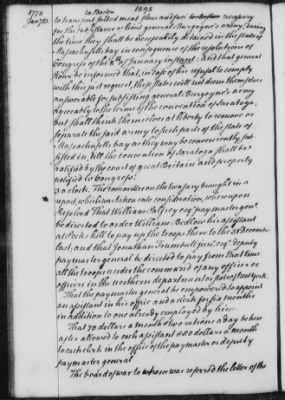 1778
Jan 7th.
1098
in Boston
to transport salted meat flour and fuel to Boston necessary
for the subsistence of lieut general Burgoyne's army, during
the time they shall be necessarily detained in the state of
Massachusetts bay in consequence of the resolutions of
Congress of the 8th of January instant: and that general
Howe be informed that, in case of his refusal to comply
with this just request, these states will not deem themselves
answerable for subsisting general Burgoyne's army
agreeably to the terms of the convention of Saratoga,
but shall think themselves at liberty to remove or
separate the said army to such parts of the state of
Massachusetts bay as they may be conveniently sub-
sisted in, till the convention of Saratoga shall be
ratified by the court of great Britain and properly
notified to Congress:
3 o'clock. The committee on the treasury brought in a
report, which was taken into consideration, whereupon
Resolved That William Palfrey esqr paymaster genl
be directed to order William Bedlow his assistant
at Peeks kill to pay up the troops there to the 31 December
last; and that Jonathan Trumbull junr esqr deputy
paymaster general be directed to pay from that time
all the troops under the command of any officer or
officers in the northern department or state of New York.
That the paymaster general be empowered to appoint
an assistant in his office and a clerk for six months
in addition to one already employed by him.
That 70 dollars a month & two rations a day be here
after allowed to each assistant & 50 dollars a month
to each clerk in the office of the paymaster or deputy
paymaster general
The board of war to whom was referred the letter of the